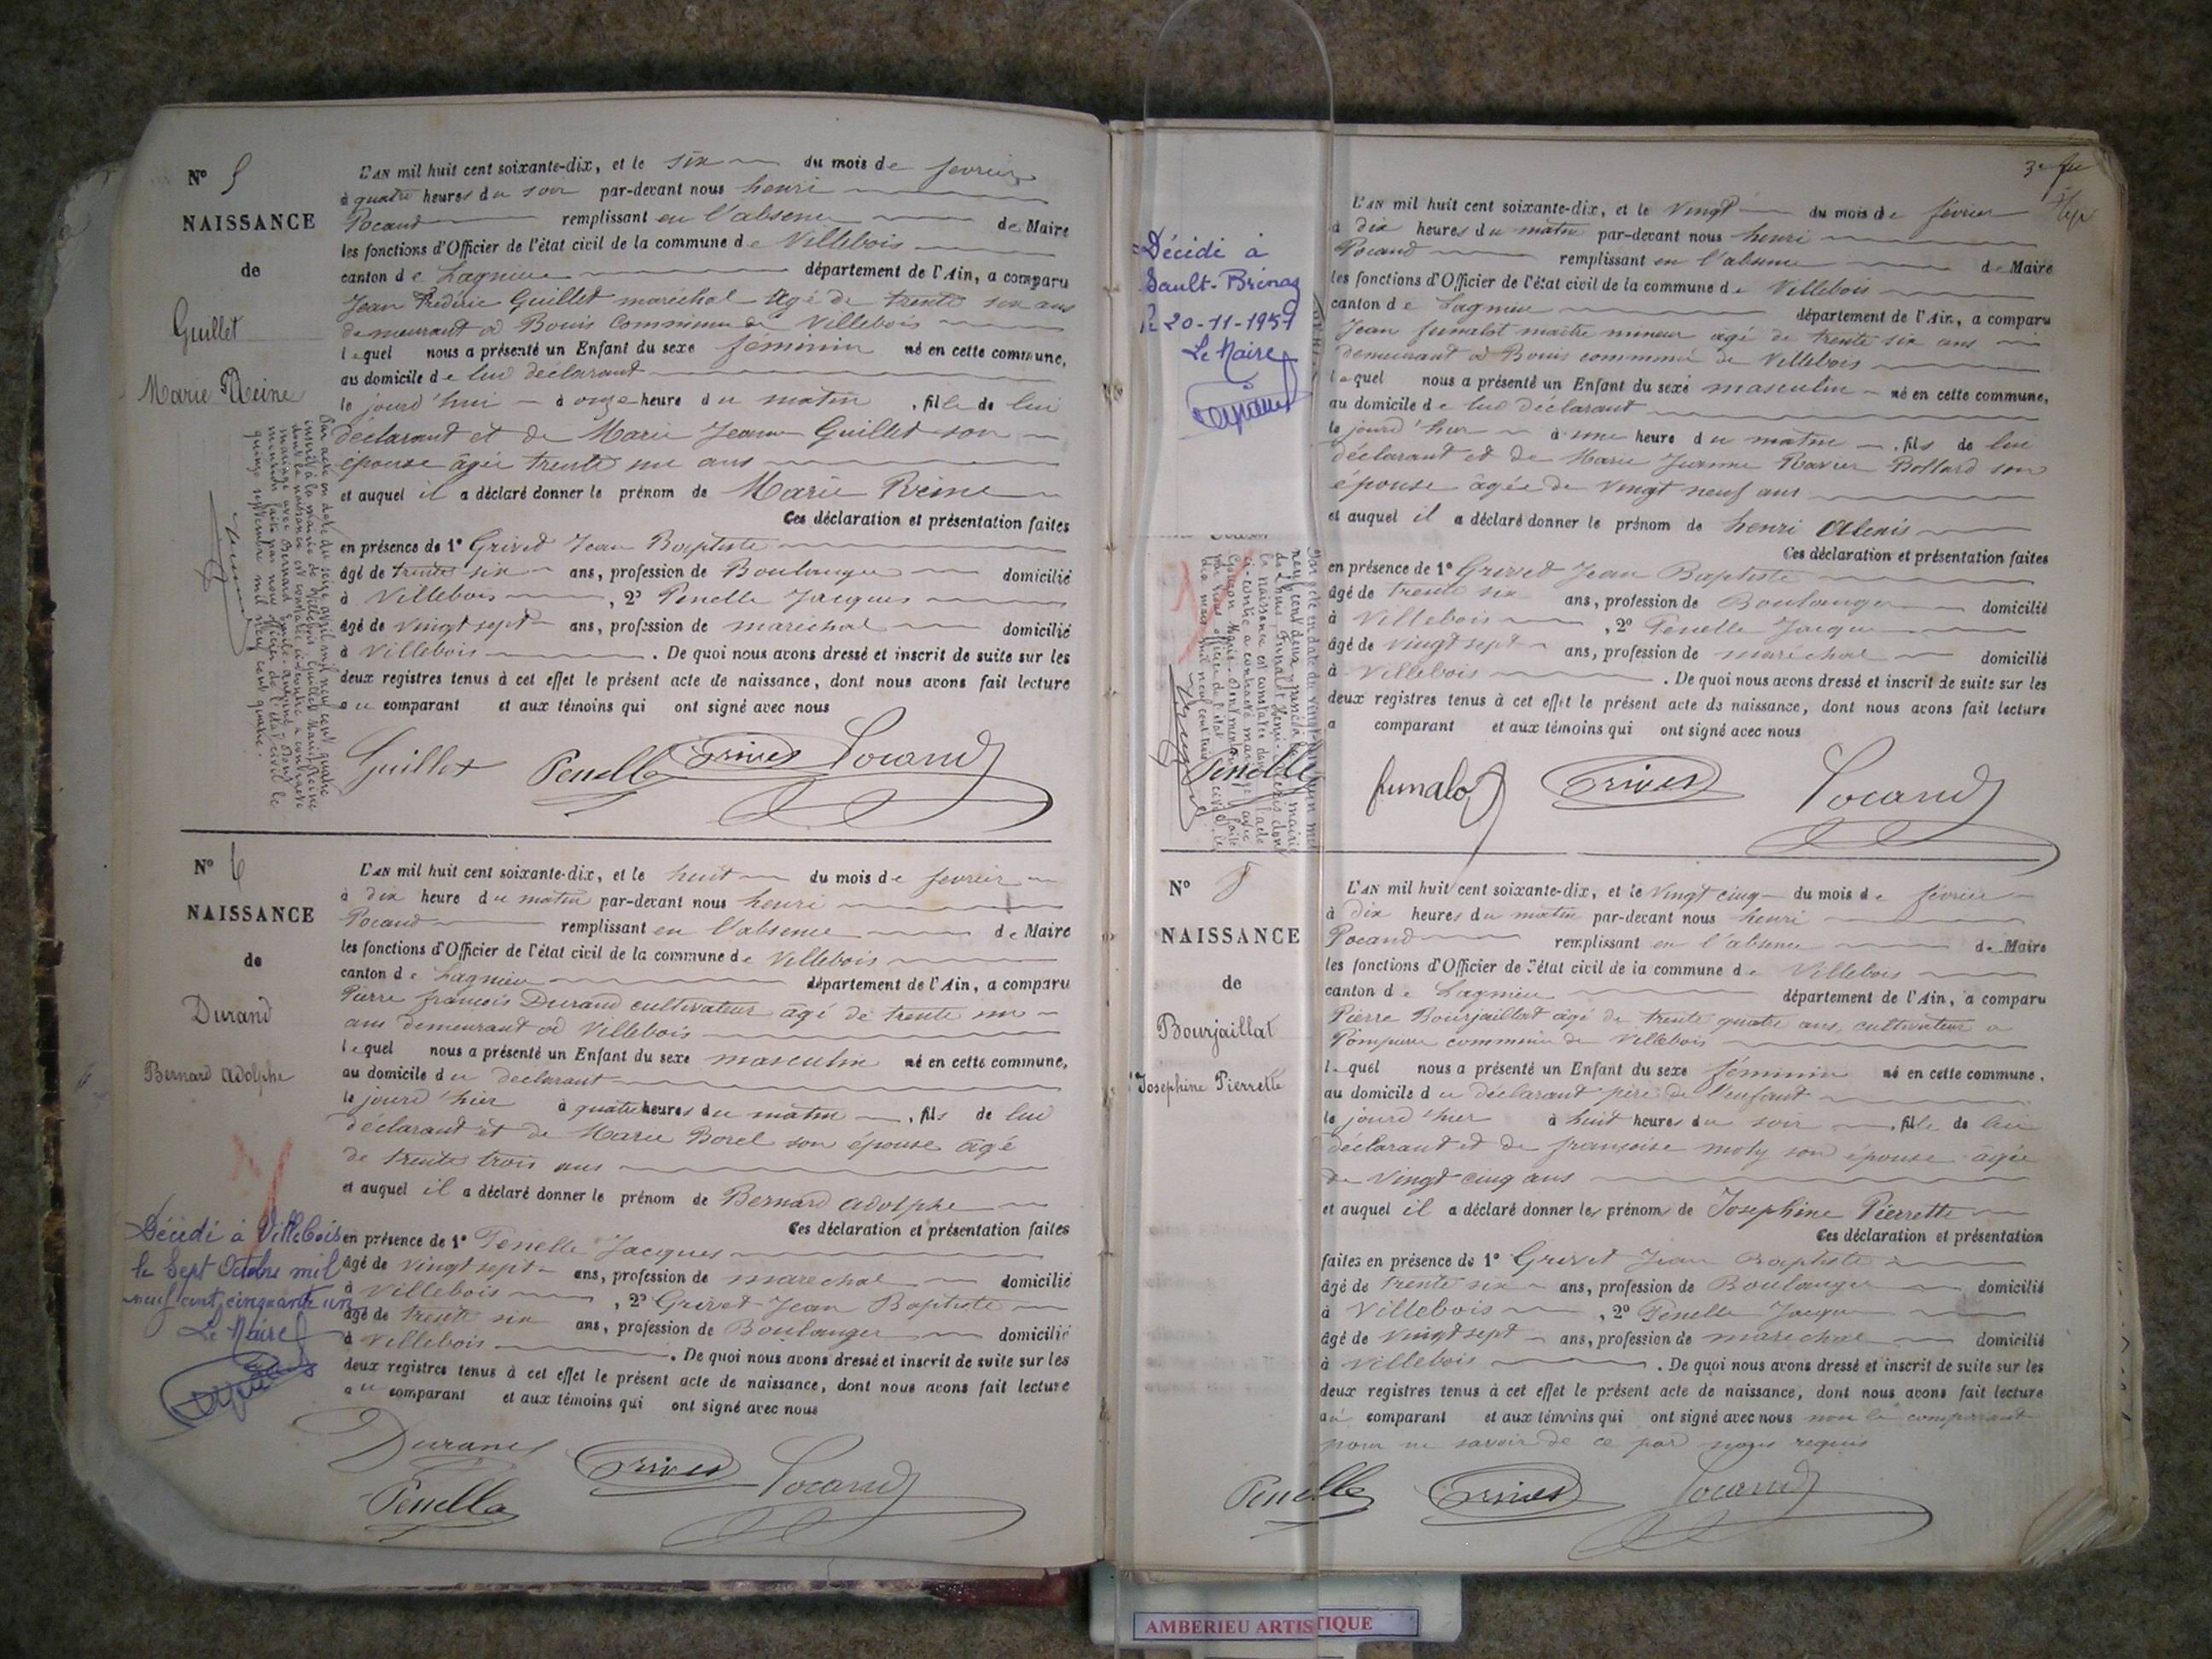 N° 5
NAISSANCE
de
Guillet
Marie Reine
L'AN mil huit cent soixante-dix, et le six du mois de fevrier
à quatre heures du soir par-devant nous henri
Pocand remplissant en l'absence de Maire
les fonctions d'Officier de l'état civil de la commune de Villebois
canton de Lagnieu département de l'Ain, a comparu
Jean Frederic Guillet maréchal agé de trente six ans
demeurant à Bouis commune de Villebois
lequel nous a présenté un Enfant du sexe feminin né en cette commune,
au domicile de lui declarant
le jourd'hui à onze heure du matin, fille de lui
déclarant et de Marie Jeanne Guillet son
épouse âgée trente un ans
et auquel il a déclaré donner le prénom de Marie Reine
Ces déclaration et présentation faites
en présence de 1° Grivet Jean Baptiste
âgé de trente six ans, profession de Boulanger domicilié
à Villebois, 2° Penelle Jacques
âgé de vingt sept ans, profession de marechal domicilié
à Villebois. De quoi nous avons dressé et inscrit de suite sur les
deux registres tenus à cet effet le présent acte de naissance, dont nous avons fait lecture
au comparant et aux témoins qui ont signé avec nous
Guillet Penelle Grivet Pocand
Par acte en date du seize avril mil neuf cent quatre
inscrit à la mairie de Villebois, Guillet Marie Reine
dont la naissance est constatée ci-contre a contracté
mariage avec Bernard
mention faite par nous officier de l'état civil le
quinze septembre mil neuf cent quatre.
N° 6
NAISSANCE
de
Durand
Bernard Adolphe
L'AN mil huit cent soixante-dix, et le huit du mois de fevrier
à dix heure du matin par-devant nous henri
Pocand remplissant en l'absence de Maire
les fonctions d'Officier de l'état civil de la commune de Villebois
canton de Lagnieu département de l'Ain, a comparu
Pierre françois Durand cultivateur âgé de trente un
ans demeurant à Villebois
lequel nous a présenté un Enfant du sexe masculin né en cette commune,
au domicile du declarant
le jourd'hier à quatre heures du matin, fils de lui
déclarant et de Marie Borel son épouse âgé
de trente trois ans
et auquel il a déclaré donner le prénom de Bernard adolphe
Ces déclaration et présentation faites
en présence de 1° Penelle Jacques
âgé de vingt sept ans, profession de marechal domicilié
à Villebois, 2° Grivet Jean Baptiste
âgé de trente six ans, profession de Boulanger domicilié
à Villebois. De quoi nous avons dressé et inscrit de suite sur les
deux registres tenus à cet effet le présent acte de naissance, dont nous avons fait lecture
au comparant et aux témoins qui ont signé avec nous
Durand Grivet Pocand
Penelle
Décédé à Villebois
le Sept Octobre mil
neuf cent cinquante un
Le Maire
3e fet
Décédé à
Sault-Brénaz
le 20-11-1951
Le Maire
L'AN mil huit cent soixante-dix, et le vingt du mois de février
à dix heures du matin par-devant nous henri
Pocand remplissant en l'absence de Maire
les fonctions d'Officier de l'état civil de la commune de Villebois
canton de Lagnieu département de l'Ain, a comparu
Jean funalot maitre mineur agé de trente six ans
demeurant à Bouis commune de Villebois
lequel nous a présenté un Enfant du sexe masculin né en cette commune,
au domicile de lui déclarant
le jourd'hier à une heure du matin, fils de lui
déclarant et de Marie Jeanne Ravier Bollard son
épouse âgée de vingt neuf ans
et auquel il a déclaré donner le prénom de henri Alexis
Ces déclaration et présentation faites
en présence de 1° Grivet Jean Baptiste
âgé de trente six ans, profession de Boulanger domicilié
à Villebois, 2° Penelle Jacques
âgé de vingt sept ans, profession de maréchal domicilié
à Villebois. De quoi nous avons dressé et inscrit de suite sur les
deux registres tenus à cet effet le présent acte de naissance, dont nous avons fait lecture
a comparant et aux témoins qui ont signé avec nous
Penelle funalot Grivet Pocand
N° 8
NAISSANCE
de
Bourjaillat
Josephine Pierrette
L'AN mil huit cent soixante-dix, et le vingt cinq du mois de février
à dix heures du matin par-devant nous henri
Pocand remplissant en l'absence de Maire
les fonctions d'Officier de l'état civil de la commune de Villebois
canton de Lagnieu département de l'Ain, a comparu
Pierre Bourjaillat agé de trente quatre ans, cultivateur a
commune de Villebois
lequel nous a présenté un Enfant du sexe féminin né en cette commune,
au domicile du déclarant père de l'enfant
le jourd'hier à huit heures du soir, fille de lui
déclarant et de françoise moly son épouse âgée
de vingt cinq ans
et auquel il a déclaré donner les prénoms de Josephine Pierrette
Ces déclaration et présentation
faites en présence de 1° Grivet Jean Baptiste
âgé de trente six ans, profession de Boulanger domicilié
à Villebois, 2° Penelle Jacques
âgé de vingt sept ans, profession de maréchal domicilié
à Villebois. De quoi nous avons dressé et inscrit de suite sur les
deux registres tenus à cet effet le présent acte de naissance, dont nous avons fait lecture
au comparant et aux témoins qui ont signé avec nous non le comparant
pour ne savoir de ce par nous requis
Penelle Grivet Pocand
AMBERIEU ARTISTIQUE